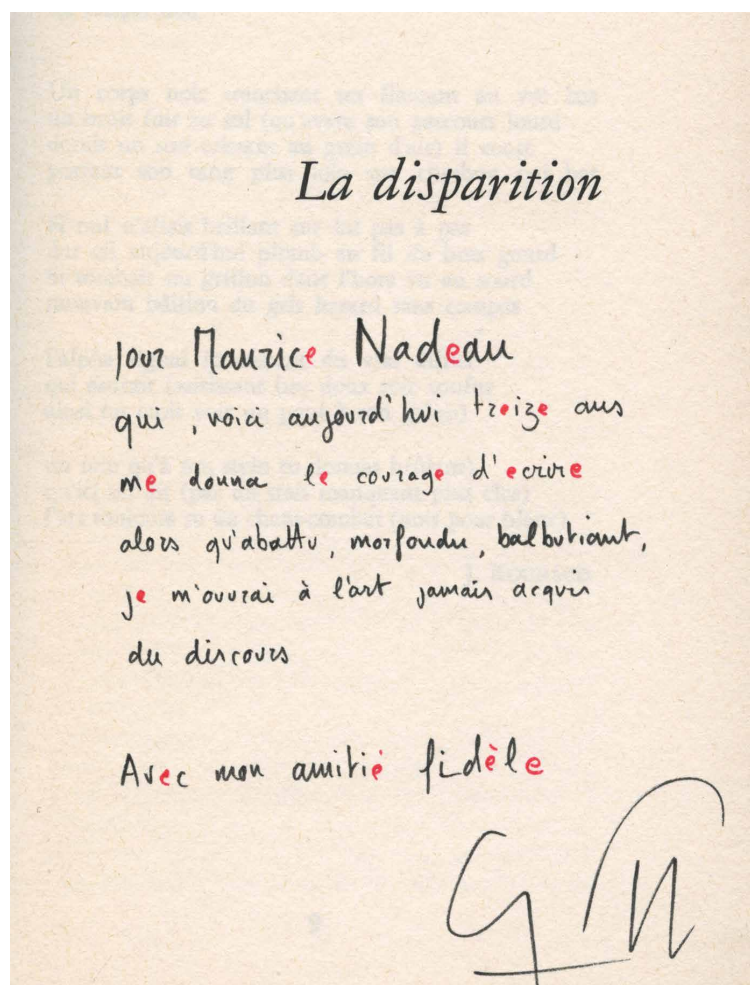 La disparition
pour Maurice Nadeau
qui, voici aujourd'hui treize ans
me donna le courage d'ecrire
alors qu'abattu, morfondu, balbutiant,
je m'ouvrai à l'art jamais acquis
du discours
Avec mon amitié fidèle